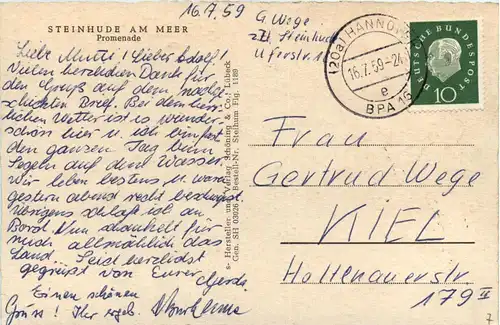 STEINHUDE AM MEER
Promenade
16.7.59
Liebe Mutti! Lieber Adolf!
Vielen herzlichen Dank für
den Gruß auf dem nachge-
schickten Brief. Bei dem herr-
lichen Wetter ist es wunder-
schön hier u. ich bin fast
den ganzen Tag beim
Segeln auf dem Wasser.
Wir leben bestens u. waren
gestern abend recht beschwipst.
Übrigens schlaf ich an
Bord. Nun schaukelt für
mich allmählich das
Land. Seid herzlichst
gegrüßt von Eurer Gerda.
Einen schönen
Gruss! Ihr ergeb.
s- Hersteller und Verlag Schöning & Co., Lübeck
Gen. SH 03026 Bestell-Nr. Steinhum Fig. 1189
G. Wege
z.Zt. Steinhude
Uferstr. 1
(20a) HANNOVER
16.7.59-24
e
BPA 16
DEUTSCHE BUNDESPOST
10
Frau
Gertrud Wege
KIEL
Holtenauerstr
179 II
7